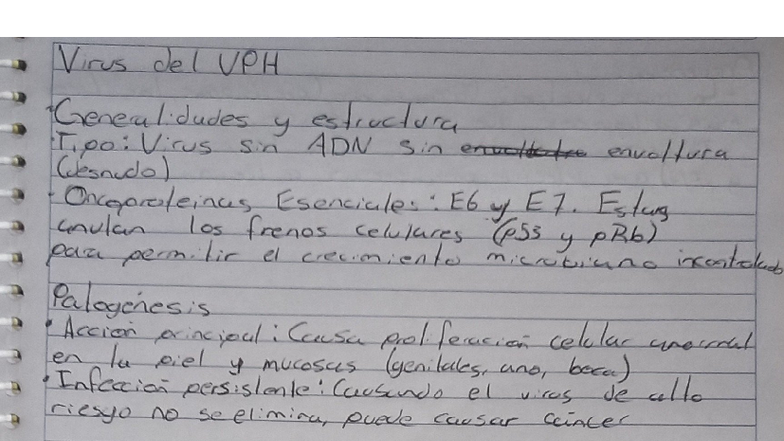 Virus del VPH
Generalidades y estructura
· Tipo: Virus sin ADN sin envoltura
(desnudo)
· Oncoproteinas Esenciales: E6 y E7. Estas
anulan los frenos celulares (p53 y pRb)
para permitir el crecimiento microbiano incontrolado
Patogénesis
· Acción principal: Causa proliferación celular anormal
en la piel y mucosas (genitales, ano, boca)
· Infección persistente: Causando el virus de alto
riesgo no se elimina, puede causar cáncer